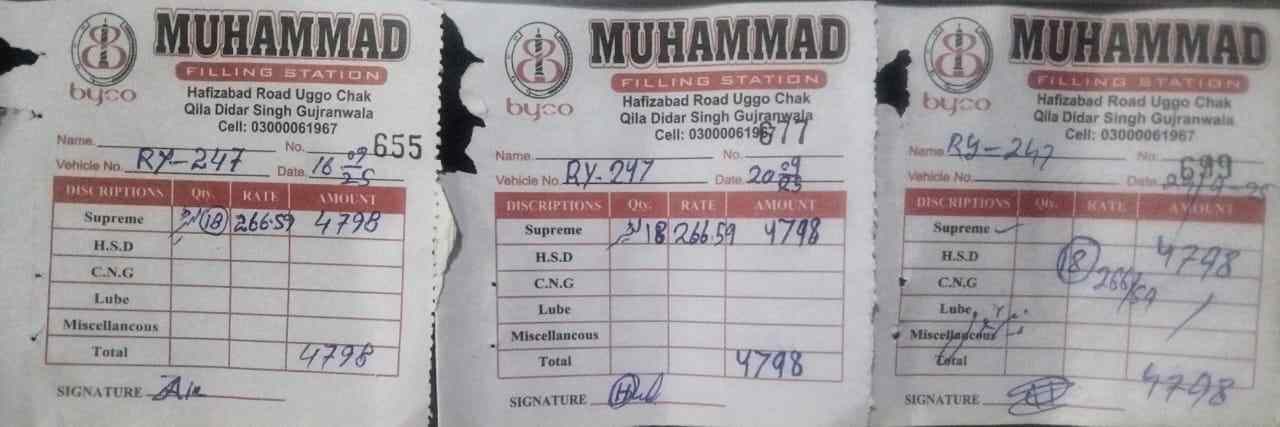 byco
MUHAMMAD
FILLING STATION
Hafizabad Road Uggo Chak
Qila Didar Singh Gujranwala
Cell: 03000061967
Name. No. 655
Vehicle No. RY-247 Date. 16 09/25
DISCRIPTIONS Qty. RATE AMOUNT
Supreme 18 266.59 4798
H.S.D
C.N.G
Lube
Miscellancous
Total 4798
SIGNATURE
byco
MUHAMMAD
FILLING STATION
Hafizabad Road Uggo Chak
Qila Didar Singh Gujranwala
Cell: 03000061967
Name. No. 677
Vehicle No. RY-247 Date. 20 09/25
DISCRIPTIONS Qty. RATE AMOUNT
Supreme 18 266.59 4798
H.S.D
C.N.G
Lube
Miscellancous
Total 4798
SIGNATURE
byco
MUHAMMAD
FILLING STATION
Hafizabad Road Uggo Chak
Qila Didar Singh Gujranwala
Cell: 03000061967
Name. RY-247 No. 699
Vehicle No. Date.
DISCRIPTIONS Qty. RATE AMOUNT
Supreme 4798
H.S.D 18
C.N.G 266/59
Lube
Miscellancous
Total 4798
SIGNATURE